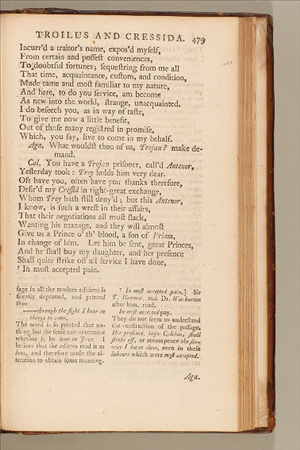 TROILUS AND CRESSIDA. 479
Incurr'd a traitor's name, expos'd myself,
From certain and possest conveniences,
To doubtful fortunes; sequestring from me all
That time, acquaintance, custom, and condition,
Made tame and most familiar to my nature,
And here, to do you service, am become
As new into the world, strange, unacquainted.
I do beseech you, as in way of taste,
To give me now a little benefit,
Out of those many registred in promise,
Which, you say, live to come in my behalf.
Aga. What wouldst thou of us, Trojan? make de-
mand.
Cal. You have a Trojan prisoner, call'd Antenor,
Yesterday took: Troy holds him very dear.
Oft have you, often have you thanks therefore,
Desir'd my Cressid in right-great exchange,
Whom Troy hath still deny'd; but this Antenor,
I know, is such a wrest in their affairs,
That their negotiations all must slack,
Wanting his manage, and they will almost
Give us a Prince o' th' blood, a son of Priam,
In change of him. Let him be sent, great Princes,
And he shall buy my daughter, and her presence
Shall quite strike off all service I have done,
7 In most accepted pain.
sage in all the modern editions is
silently depraved, and printed
thus:
——through the sight I bear in
things to come,
The word is so printed that no-
thing but the sense can determine
whether it be love or Jove. I
believe that the editors read it as
love, and therefore made the al-
teration to obtain some meaning.
7 In most accepted pain.] Sir
T. Hanmer, and Dr. Warburton
after him, read,
In most accepted pay.
They do not seem to understand
the construction of the passage.
Her presence, says Calchas, shall
strike off, or recompence the ser-
vice I have done, even in these
labours which were most accepted.
Aga.